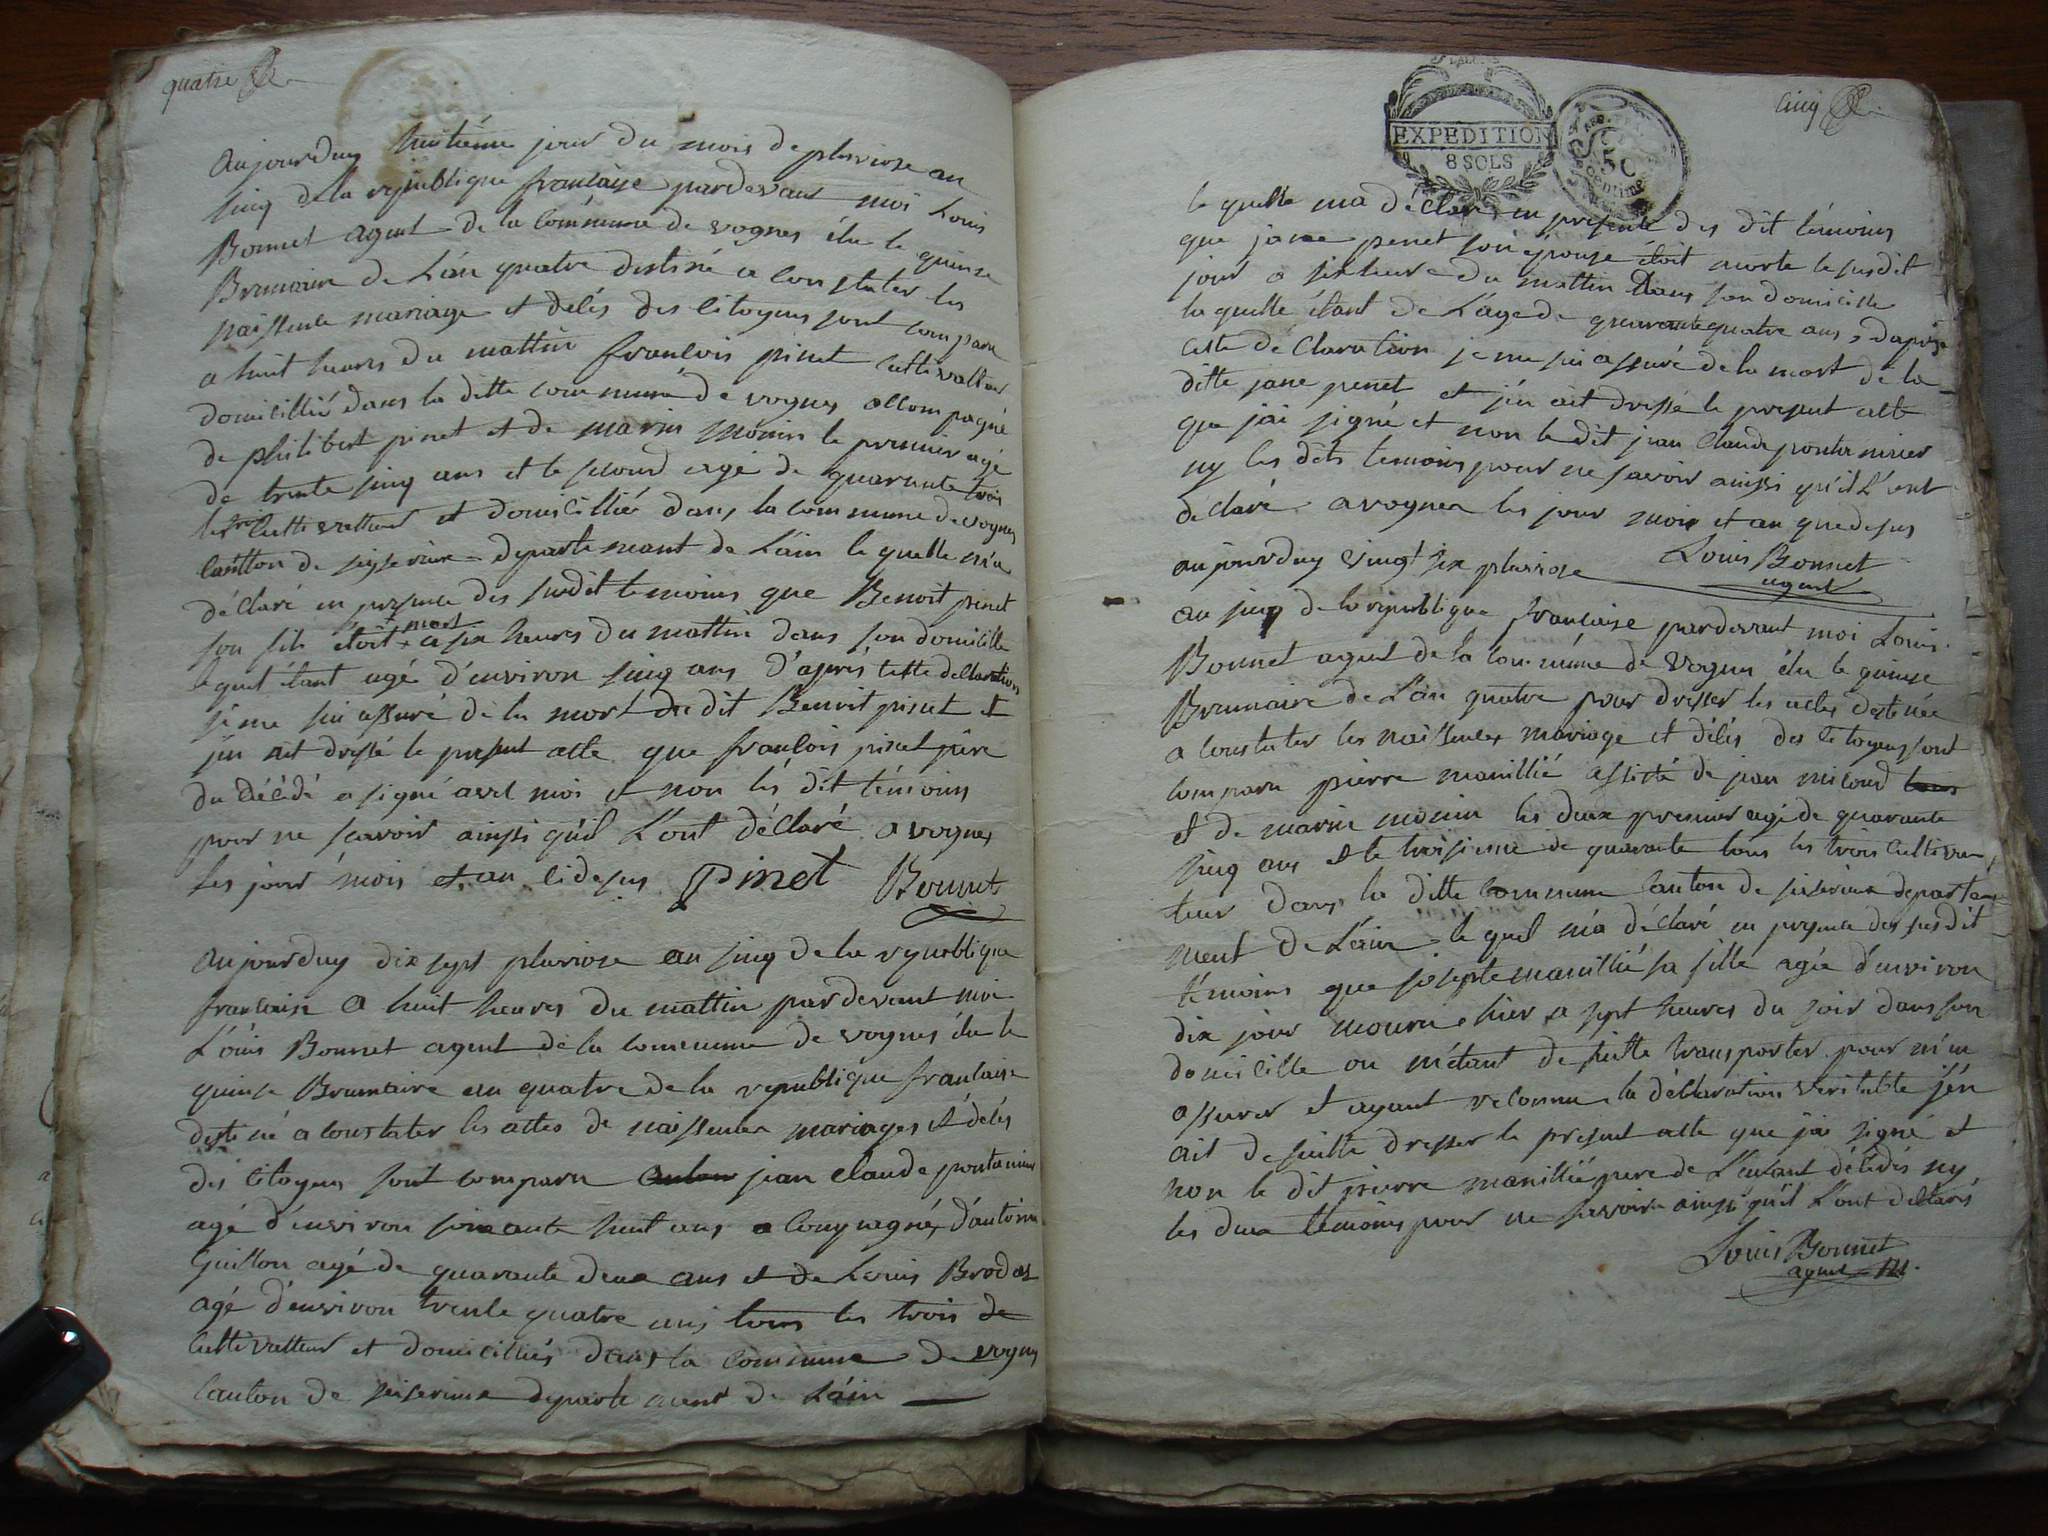 quatre
aujourduy huitiéme jour du mois de pluviose an
sinq de la republique francaise pardevant moi Louis
Bonnet agent de la commune de vognes élu le quinse
Brumaire de L'an quatre destiné a constater les
naissence mariage et délés des citoyens sont comparu
a huit heures du mattin francois pinet cultivatteur
domicillié dans la ditte commune de vognes accompagné
de philibert pinet et de marin monin le premier agé
de trente sinq ans et le second agé de quarante trois
les trois cultivatteur et domicillié dans la commune de vognes
cantton de seisserieux departemant de L'ain le quelle m'a
déclaré en presence des susdit temoins que Benoit pinet
son fils étoit mort a six heures du mattin dans son domicille
lequel étant agé d'environ sinq ans D'aprés cette declaration
je me sui assuré de la mort du dit Benoit pinet et
j'en ait dressé le present acte que francois pinet père
du décédé a signé avec moi et non lés dit témoins
pour ne scavoir ainssi qu'il L'ont déclaré a vognes
les jour mois et an cidesus Pinet Bonnet
aujourduy dix sept pluviose an sinq de la republique
francaise a huit heures du mattin pardevant moi
Louis Bonnet agent de la commune de vognes élu le
quinse Brumaire an quatre de la republique francaise
destiné a constater les actes de naissences mariages et délés
des citoyens sont comparu jean claude pontanier
agé d'environ soixante huit ans accompagnés d'antoine
Guillon agé de quarante deux ans et de Louis Brodet
agé d'environ trente quatre ans tous les trois de
cultivatteur et domicilliés dans la commune de vognes
canton de seiserieux departement de L'ain
cinq
EXPEDITION
8 SOLS
50
centimes
le quelle ma déclaré en presence des dit témoins
que jane penet son épouse étoit morte le susdit
jour a six heure du mattin dans son domicille
la quelle étant de L'age de quarante quatre ans, d'aprés
cette declaration je me sui assuré de la mort de la
ditte jane penet et j'en ait dressé le present acte
que j'ai signé et non le dit jean claude pontanier
ny les dits temoins pour ne savoir ainssi qu'il L'ont
déclaré a vognes les jour mois et an que desus
aujourduy vingt six pluviose Louis Bonnet
agent
an sinq de la republique francaise pardevant moi Louis
Bonnet agent de la commune de vognes élu le quinse
Brumaire de L'an quatre pour dresser les actes destinée
a constater les naissences mariage et délés des citoyens sont
comparu pierre manillié assisté de jean micoud
et de marin monin les deux premier agé de quarante
sinq ans et le troisieme de quarante tous les trois cultiva
teur dans la ditte commune canton de seiserieux departe
ment de L'ain le quel m'a déclaré en presence des susdit
témoins que josepte manillié sa fille agée d'environ
dix jour mouru hier a sept heures du soir dans son
domicille ou m'étant de suitte transporter pour m'en
assurer et ayant reconnu la déclaration veritable j'en
ait de suitte dresser le present acte que j'ai signé et
non le dit pierre manillié pere de L'enfant décédés ny
les deux temoins pour ne savoir ainssi qu'il L'ont déclarés
Louis Bonnet
agent